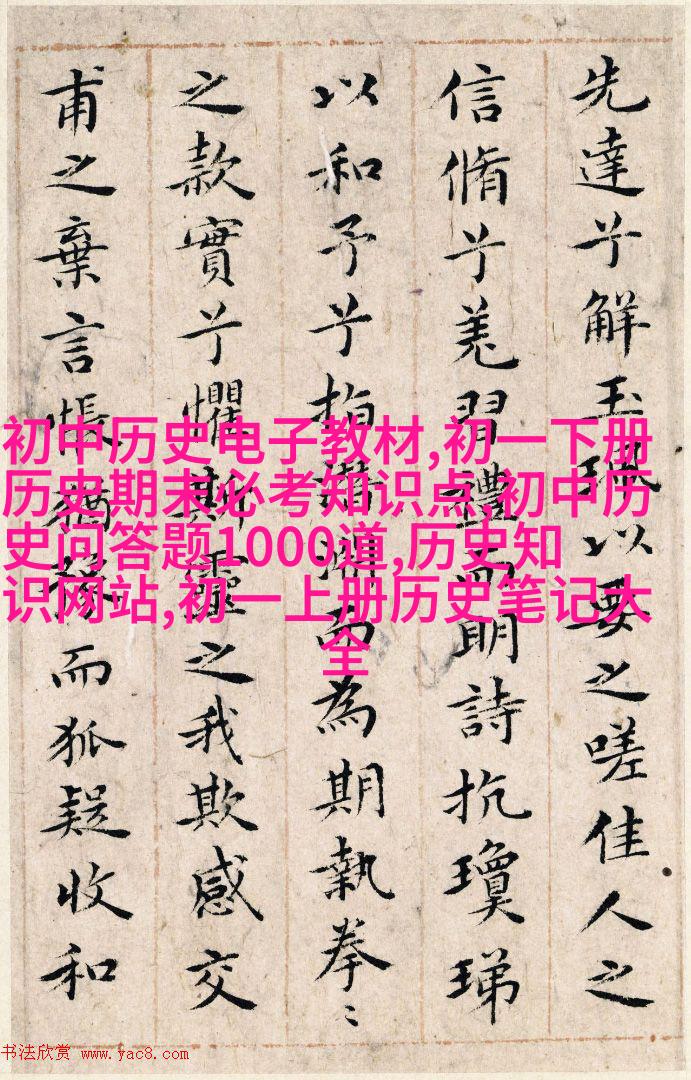 先達兮解玉珮以要之嗟佳人之
信脩兮羌習禮而明詩抗瓊珶
以和予兮指潛淵而為期執拳〻
之款實兮懼斯靈之我欺感交
甫之棄言悵猶豫而狐疑收和
初中历史电子教材,初一下册
历史期末必考知识点,初中历
史问答题1000道,历史知
识网站,初一上册历史笔记大
全
书法欣赏 www.yac8.com